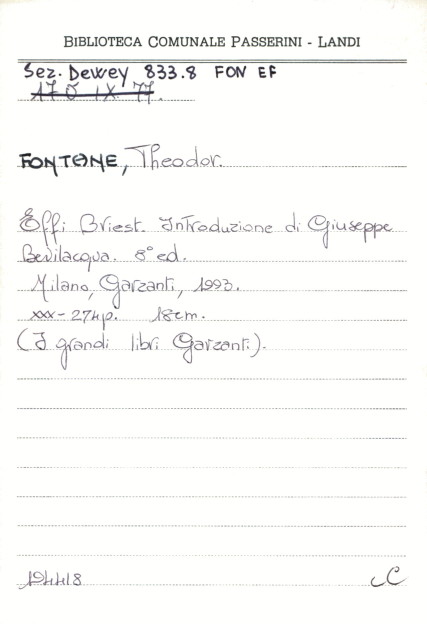 BIBLIOTECA COMUNALE PASSERINI - LANDI
Sez. Dewey 833.8 FON EF
17 O IX 77.
FONTANE, Theodor.
Effi Briest. Introduzione di Giuseppe
Bevilacqua. 8° ed.
Milano, Garzanti, 1993.
XXX-274p. 18cm.
(I grandi libri Garzanti).
194418